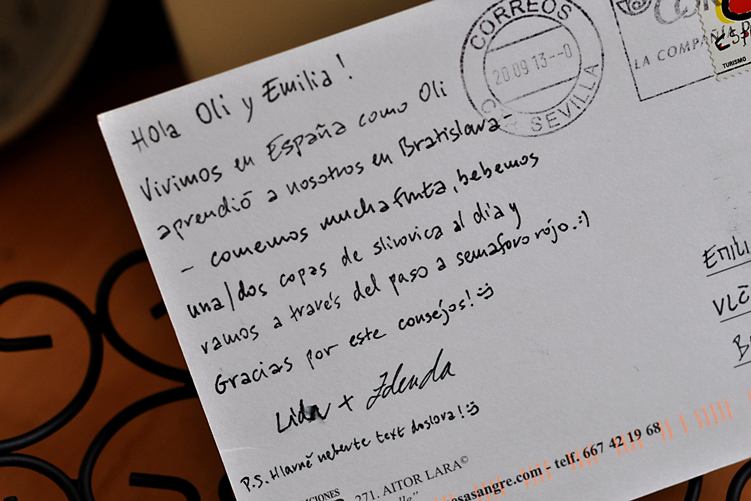 CORREOS
20 09 13--0
SEVILLA
LA COMPAÑÍA
TURISMO
Hola Oli y Emilia!
Vivimos en España como Oli
aprendió a nosotros en Bratislava -
- comemos mucha fruta, bebemos
una/dos copas de slivovica al día y
vamos a través del paso a semaforo rojo. :)
Gracias por este consejos! :)
Lida + Zdenda
P.S. Hlavně neberte text doslova! :)
EMILI
VLČ
B
271. AITOR LARA©
osasangre.com - telf. 667 42 19 68